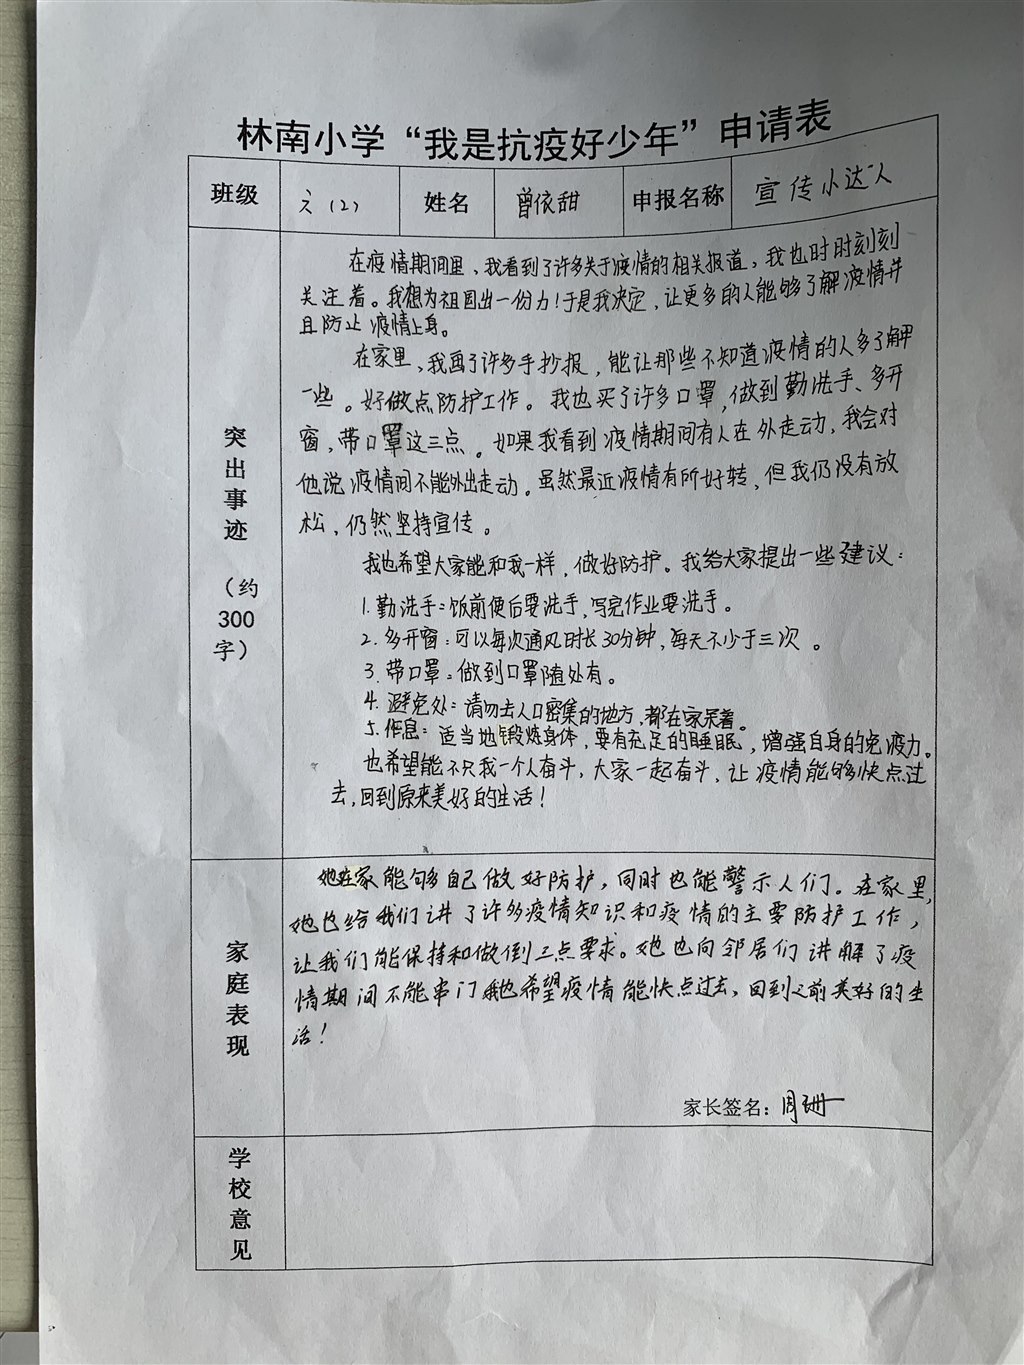 林南小学“我是抗疫好少年”申请表
班级 (2) 姓名 曾依甜 申报名称 宣传小达人
突出事迹（约300字）
在疫情期间里、我看到了许多关于疫情的相关报道，我也时时刻刻
关注着。我想为祖国出一份力！于是我决定，让更多的人能够了解疫情并
且防止疫情上身。
在家里、我画了许多手抄报，能让那些不知道疫情的人多了解
一些。好做点防护工作。我也买了许多口罩，做到勤洗手、多开
窗，带口罩这三点。如果我看到疫情期间有人在外走动，我会对
他说疫情间不能外出走动。虽然最近疫情有所好转，但我仍没有放
松，仍然坚持宣传。
我也希望大家能和我一样，做好防护。我给大家提出一些建议：
1.勤洗手：饭前便后要洗手，写完作业要洗手。
2.多开窗：可以每次通风时长30分钟，每天不少于三次。
3.带口罩：做到口罩随处有。
4.避免处：请勿去人口密集的地方，都在家呆着。
5.作息：适当地锻炼身体，要有充足的睡眠，增强自身的免疫力。
也希望能不只我一个人奋斗，大家一起奋斗，让疫情能够快点过
去，回到原来美好的生活！
家庭表现
她在家能够自己做好防护，同时也能警示人们。在家里，
她也给我们讲了许多疫情知识和疫情的主要防护工作，
让我们能保持和做倒三点要求。她也向邻居们讲解了疫
情期间不能串门 也希望疫情能快点过去，回到之前美好的生
活！
家长签名：周珊
学校意见